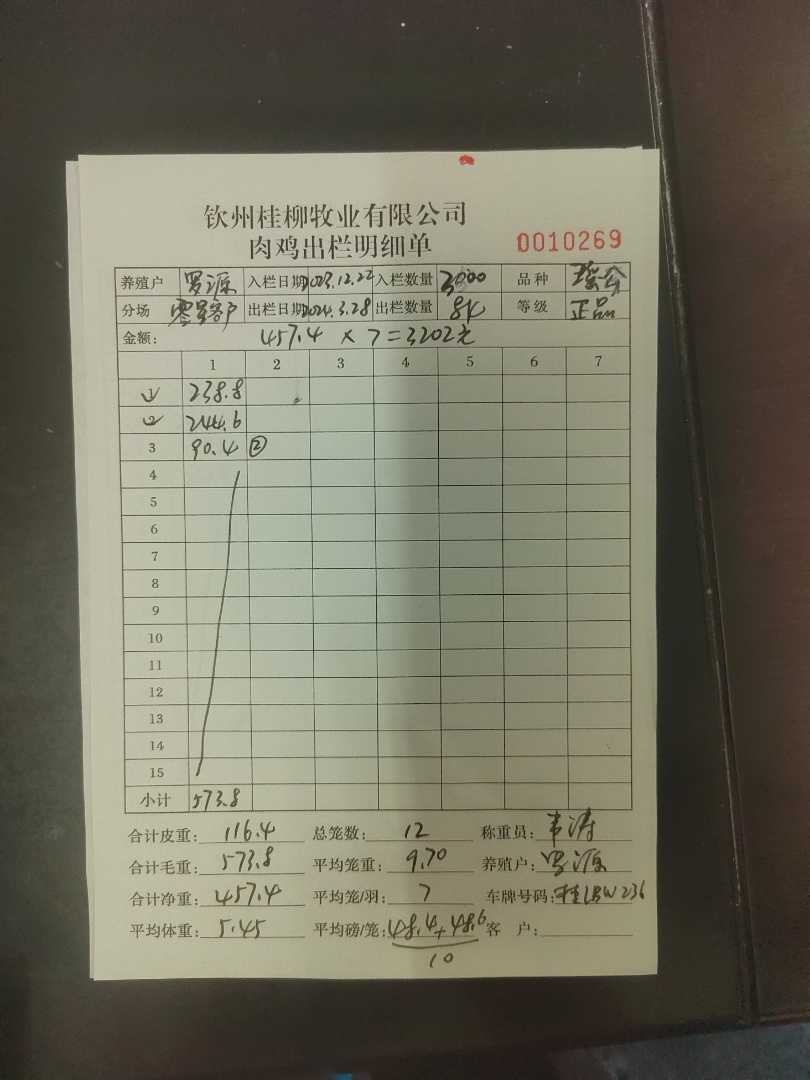 钦州桂柳牧业有限公司
肉鸡出栏明细单 0010269
养殖户 罗源 入栏日期 2023.12.22 入栏数量 3000 品种
分场 零星客户 出栏日期 2024.3.28 出栏数量 84 等级 正品
金额: 457.4 × 7 = 3202元
1 2 3 4 5 6 7
① 238.8
② 244.6
3 90.4 ②
4
5
6
7
8
9
10
11
12
13
14
15
小计 573.8
合计皮重: 116.4 总笼数: 12 称重员: 韦涛
合计毛重: 573.8 平均笼重: 9.70 养殖户: 罗源
合计净重: 457.4 平均笼/羽: 7 车牌号码: 桂LBW236
平均体重: 5.45 平均磅/笼: 48.4+48.6 客 户:
10